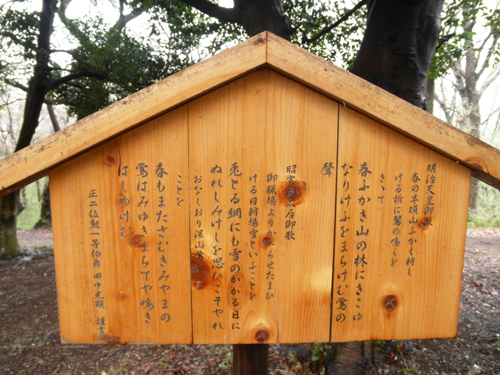 明治天皇御歌
春の半頃山ふかく狩し
ける折に鶯の鳴くを
きゝて
春ふかき山の林にきこゆ
なりけふをまちけむ鶯の
聲
昭憲皇后御歌
御猟場よりかへらせたまひ
ける日狩場雪といふことを
兎とる網にも雪のかかる日に
ぬれしみけしを思ひこそやれ
おなしおり深山鶯といふ
ことを
春もまたさむきみやまの
鶯はみゆきまちてや鳴き
はしめけむ
正二位勲一等伯爵田中光顕 謹書